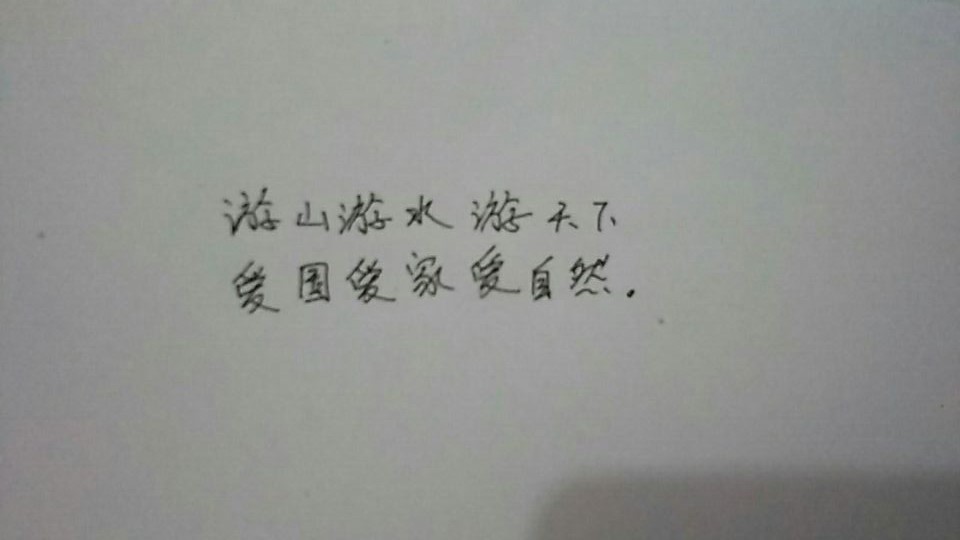 游山游水游天下
爱国爱家爱自然.